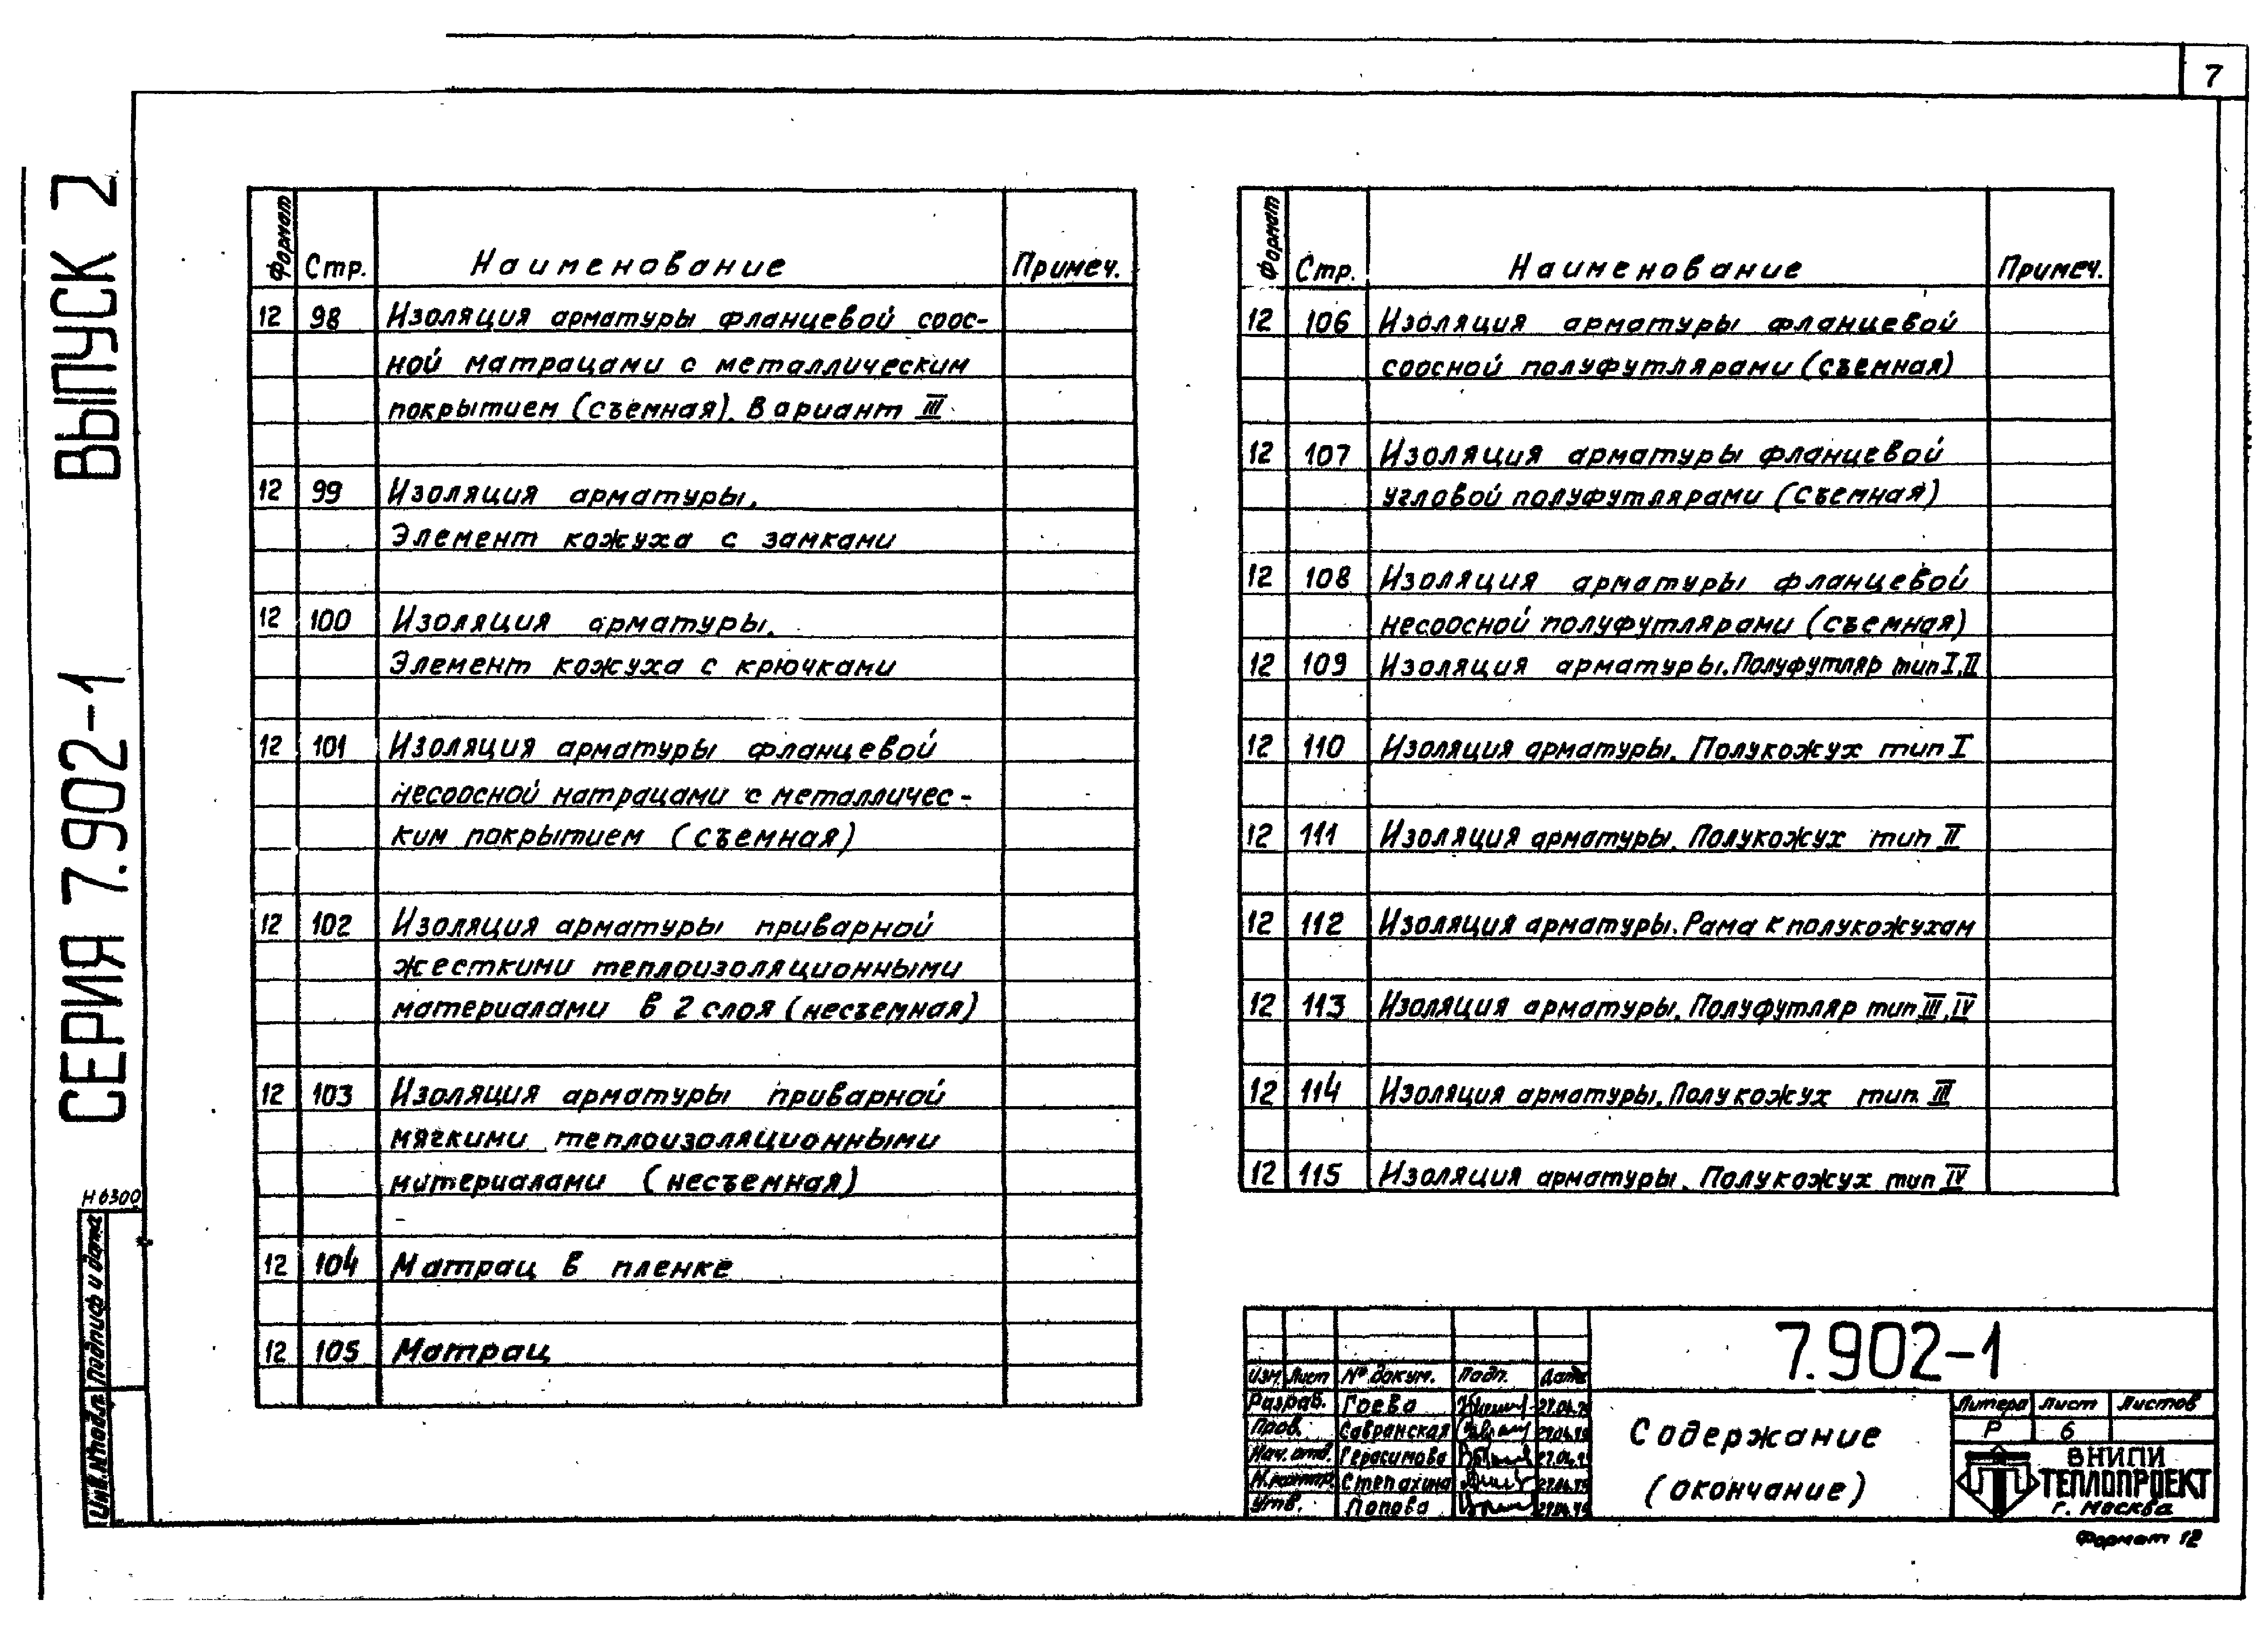 7
СЕРИЯ 7.902-1 ВЫПУСК 2
Формат Стр. Наименование Примеч.
12 98 Изоляция арматуры фланцевой соос-
ной матрацами с металлическим
покрытием (съемная). Вариант III
12 99 Изоляция арматуры.
Элемент кожуха с замками
12 100 Изоляция арматуры.
Элемент кожуха с крючками
12 101 Изоляция арматуры фланцевой
несоосной матрацами с металличес-
ким покрытием (съемная)
12 102 Изоляция арматуры приварной
жесткими теплоизоляционными
материалами в 2 слоя (несъемная)
12 103 Изоляция арматуры приварной
мягкими теплоизоляционными
материалами (несъемная)
12 104 Матрац в пленке
12 105 Матрац
Формат Стр. Наименование Примеч.
12 106 Изоляция арматуры фланцевой
соосной полуфутлярами (съемная)
12 107 Изоляция арматуры фланцевой
угловой полуфутлярами (съемная)
12 108 Изоляция арматуры фланцевой
несоосной полуфутлярами (съемная)
12 109 Изоляция арматуры. Полуфутляр тип I, II
12 110 Изоляция арматуры. Полукожух тип I
12 111 Изоляция арматуры. Полукожух тип II
12 112 Изоляция арматуры. Рама к полукожухам
12 113 Изоляция арматуры. Полуфутляр тип III, IV
12 114 Изоляция арматуры. Полукожух тип III
12 115 Изоляция арматуры. Полукожух тип IV
Н6300
Инв.№подл. Подпиф и дата
7.902-1
Изм. Лист № докум. Подп. Дата
Разраб. Гоева
Пров. Савранская
Нач. отд. Герасимова
Н.контр. Степахина
Утв. Попова
Содержание
(окончание)
Литера Лист Листов
Р 6
ВНИПИ
ТЕПЛОПРОЕКТ
г. Москва
Формат 12